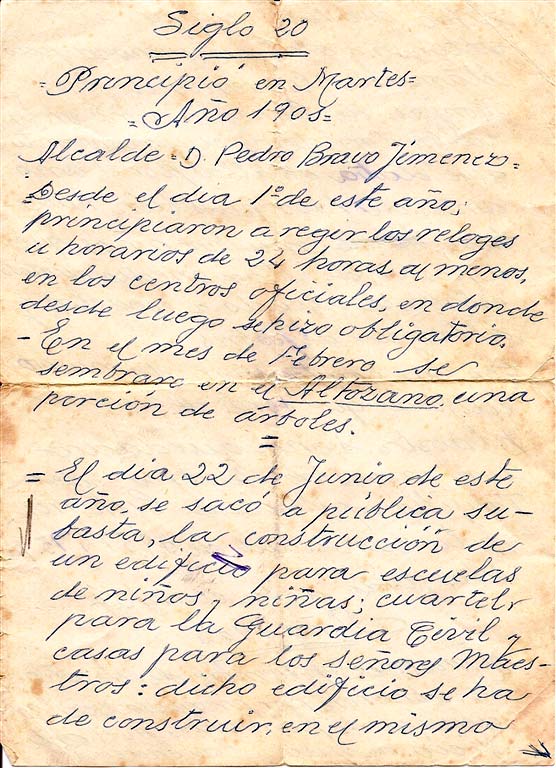 Siglo 20
= Principió en Martes =
= Año 1901 =
Alcalde = D. Pedro Bravo Jimenezo =
= Desde el dia 1º de este año;
principiaron a regir los reloges
u horarios de 24 horas, al menos,
en los centros oficiales, en donde
desde luego se hizo obligatorio.
- En el mes de Febrero se
sembraro en el Altozano una
porción de árboles.
=
= El dia 22 de Junio de este
año, se sacó a pública su-
basta, la construcción de
un edificio para escuelas
de niños y niñas; cuartel
para la Guardia Civil y
casas para los señores Maes-
tros: dicho edificio se ha
de construir, en el mismo